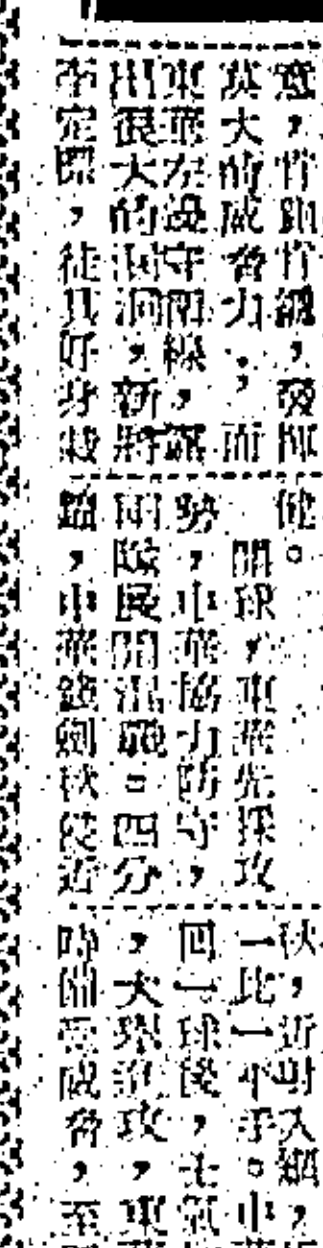 意，肯跑肯纏，發揮
莫大的威脅力，而
東華左邊守衛線，露
出很大的洞洞，新將
李定國，徒具好身裁
健。
開球，東華先採攻
勢，中華協力防守，
兩隊展開混戰。四分
鐘，中華錢劍秋從近
秋，近射入網，
一比一平手。中
回一球後，士氣
，大舉進攻，東
時備受威脅，至